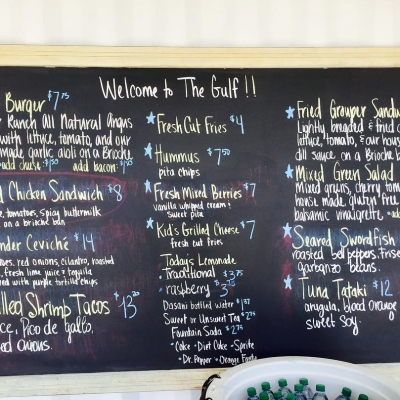 Welcome to The Gulf!!
Burger $7.75
Ranch All Natural Angus
with lettuce, tomato, and our
made garlic aioli on a Brioche
add cheese add bacon
Chicken Sandwich $8
tomatoes, spicy buttermilk
on a brioche bun
Ceviché $14
red onions, cilantro, roasted
fresh lime juice & tequila
with purple tortilla chips
Shrimp Tacos $13.50
Pico de gallo,
onions.
Fresh Cut Fries $4
Hummus $7.50
pita chips
Fresh Mixed Berries $7
vanilla whipped cream &
sweet pita
Kid's Grilled Cheese $7
fresh cut fries
Today's Lemonade
Traditional $3.75
raspberry $3.75
Dasani bottled water
Sweet or Unsweet Tea $2.75
Fountain Soda $2.75
Coke · Diet Coke · Sprite
Dr. Pepper · Orange Fanta
Fried Grouper
Lightly breaded & fried
lettuce, tomato, & our house
dill sauce, on a Brioche
Mixed Green Salad
Mixed greens, cherry
house made gluten free
balsamic vinaigrette
Seared Swordfish
roasted bell peppers,
garbanzo beans.
Tuna Tataki $12
arugula, blood orange
sweet soy